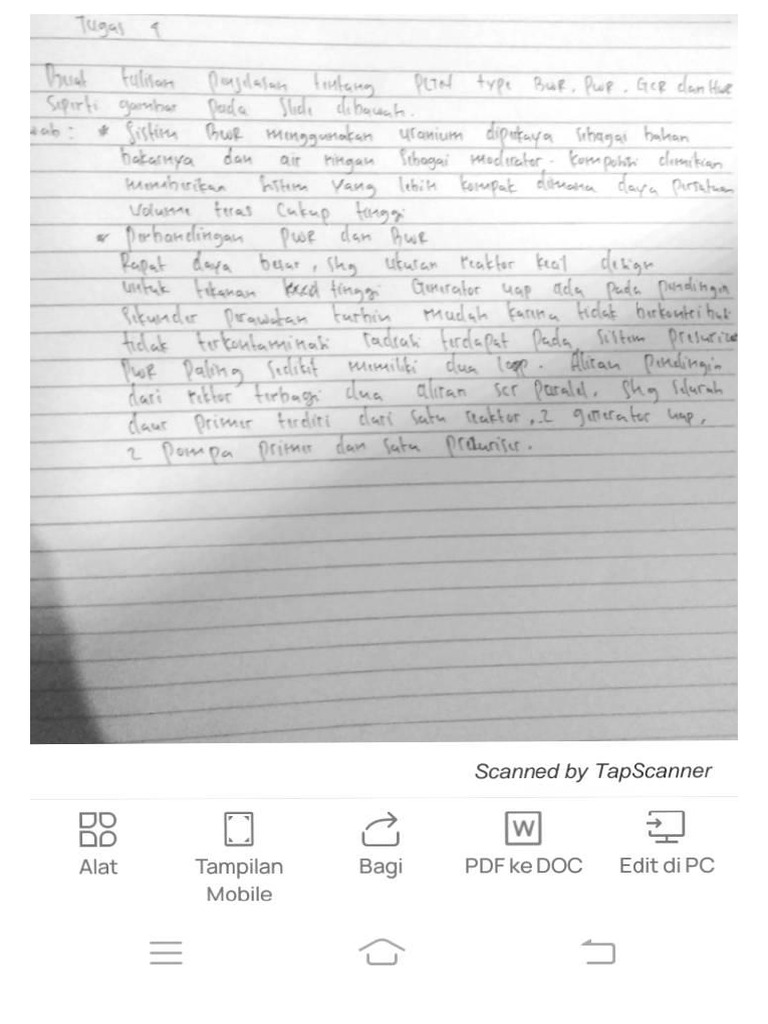 Tugas 4
Buat tulisan penjelasan tentang PLTN type BWR, PWR, GCR dan HWR
Seperti gambar pada Slide dibawah.
wab : * Sistim BWR menggunakan uranium diperkaya sebagai bahan
bakarnya dan air ringan Sebagai moderator. Komposisi demikian
memberikan sistem yang lebih kompak dimana daya persatuan
Volume teras Cukup tinggi
* Perbandingan PWR dan BWR
Rapat daya besar, shg ukuran reaktor kecil design
untuk tekanan tinggi Generator uap ada pada pendingin
Sekunder Perawatan turbin mudah karena tidak berkontribut
tidak terkontaminasi radiasi terdapat pada Sistem presurize
PWR Paling Sedikit memiliki dua loop. Aliran Pendingin
dari rektor terbagi dua aliran scr paralel, shg seluruh
daur primer terdiri dari satu reaktor, 2 generator uap,
2 pompa primer dan satu
Scanned by TapScanner
Alat Tampilan Mobile Bagi PDF ke DOC Edit di PC